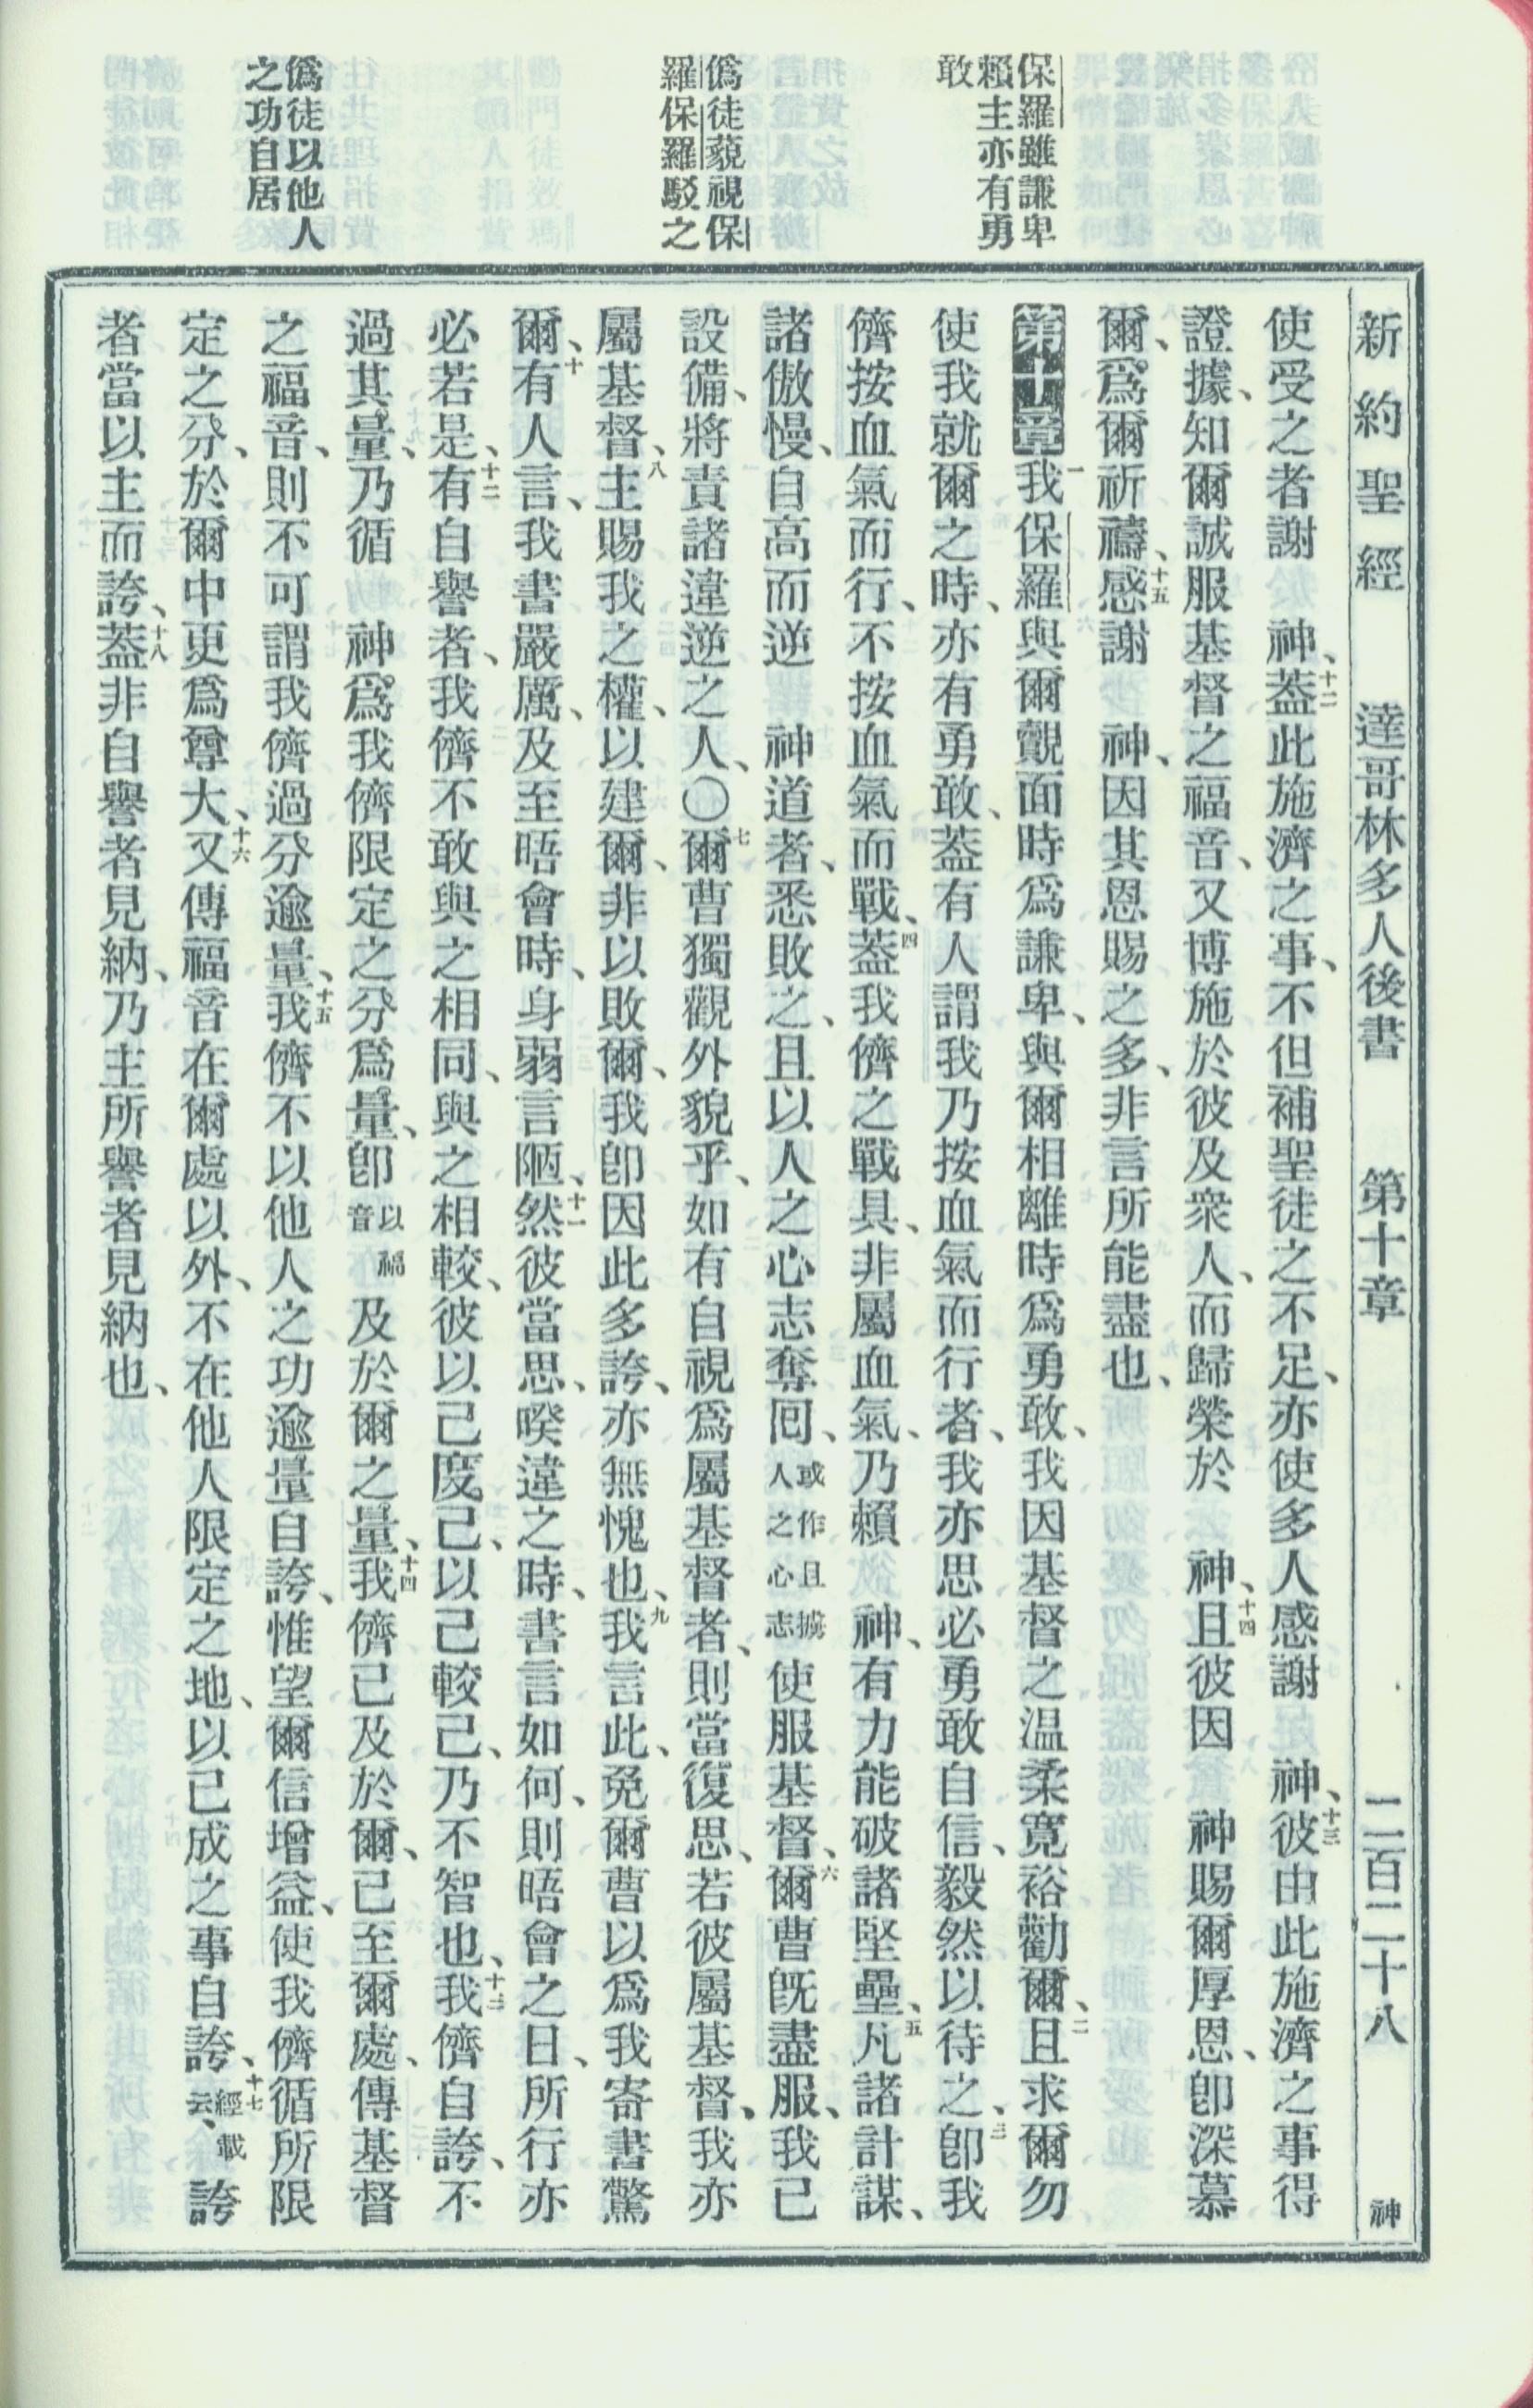 新約聖經　達哥林多人後書　第十章　二百二十八　神
保羅雖謙卑
賴主亦有勇
敢
僞徒藐視保
羅保羅駁之
僞徒以他人
之功自居
使受之者謝　神、十二蓋此施濟之事、不但補聖徒之不足、亦使多人感謝　神、十三彼由此施濟之事得
證據、知爾誠服基督之福音、又博施於彼及衆人、而歸榮於　神、十四且彼因　神賜爾厚恩、卽深慕
爾、爲爾祈禱、十五感謝　神、因其恩賜之多、非言所能盡也、
第十章一我保羅與爾覿面時爲謙卑、與爾相離時爲勇敢、我因基督之温柔寬裕勸爾、二且求爾勿
使我就爾之時、亦有勇敢、蓋有人謂我乃按血氣而行者、我亦思必勇敢自信、毅然以待之、三卽我
儕按血氣而行、不按血氣而戰、四蓋我儕之戰具、非屬血氣、乃賴　神、有力能破諸堅壘、五凡諸計謀、
諸傲慢、自高而逆　神道者、悉敗之、且以人之心志奪囘、或作且擄人之心志使服基督、六爾曹旣盡服、我已
設備、將責諸違逆之人、〇七爾曹獨觀外貌乎、如有自視爲屬基督者、則當復思、若彼屬基督、我亦
屬基督、八主賜我之權、以建爾、非以敗爾、我卽因此多誇、亦無愧也、九我言此、免爾曹以爲我寄書驚
爾、十有人言、我書嚴厲、及至晤會時、身弱言陋、十一然彼當思、暌違之時、書言如何、則晤會之日、所行亦
必若是、十二有自譽者、我儕不敢與之相同、與之相較、彼以己度己、以己較己、乃不智也、十三我儕自誇、不
過其量、乃循　神爲我儕限定之分爲量、卽以福音及於爾之量、十四我儕已及於爾、已至爾處、傳基督
之福音、則不可謂我儕過分逾量、十五我儕不以他人之功逾量自誇、惟望爾信增益、使我儕循所限
定之分、於爾中更爲尊大、十六又傳福音在爾處以外、不在他人限定之地、以已成之事自誇、十七經載云、誇
者當以主而誇、十八蓋非自譽者見納、乃主所譽者見納也、